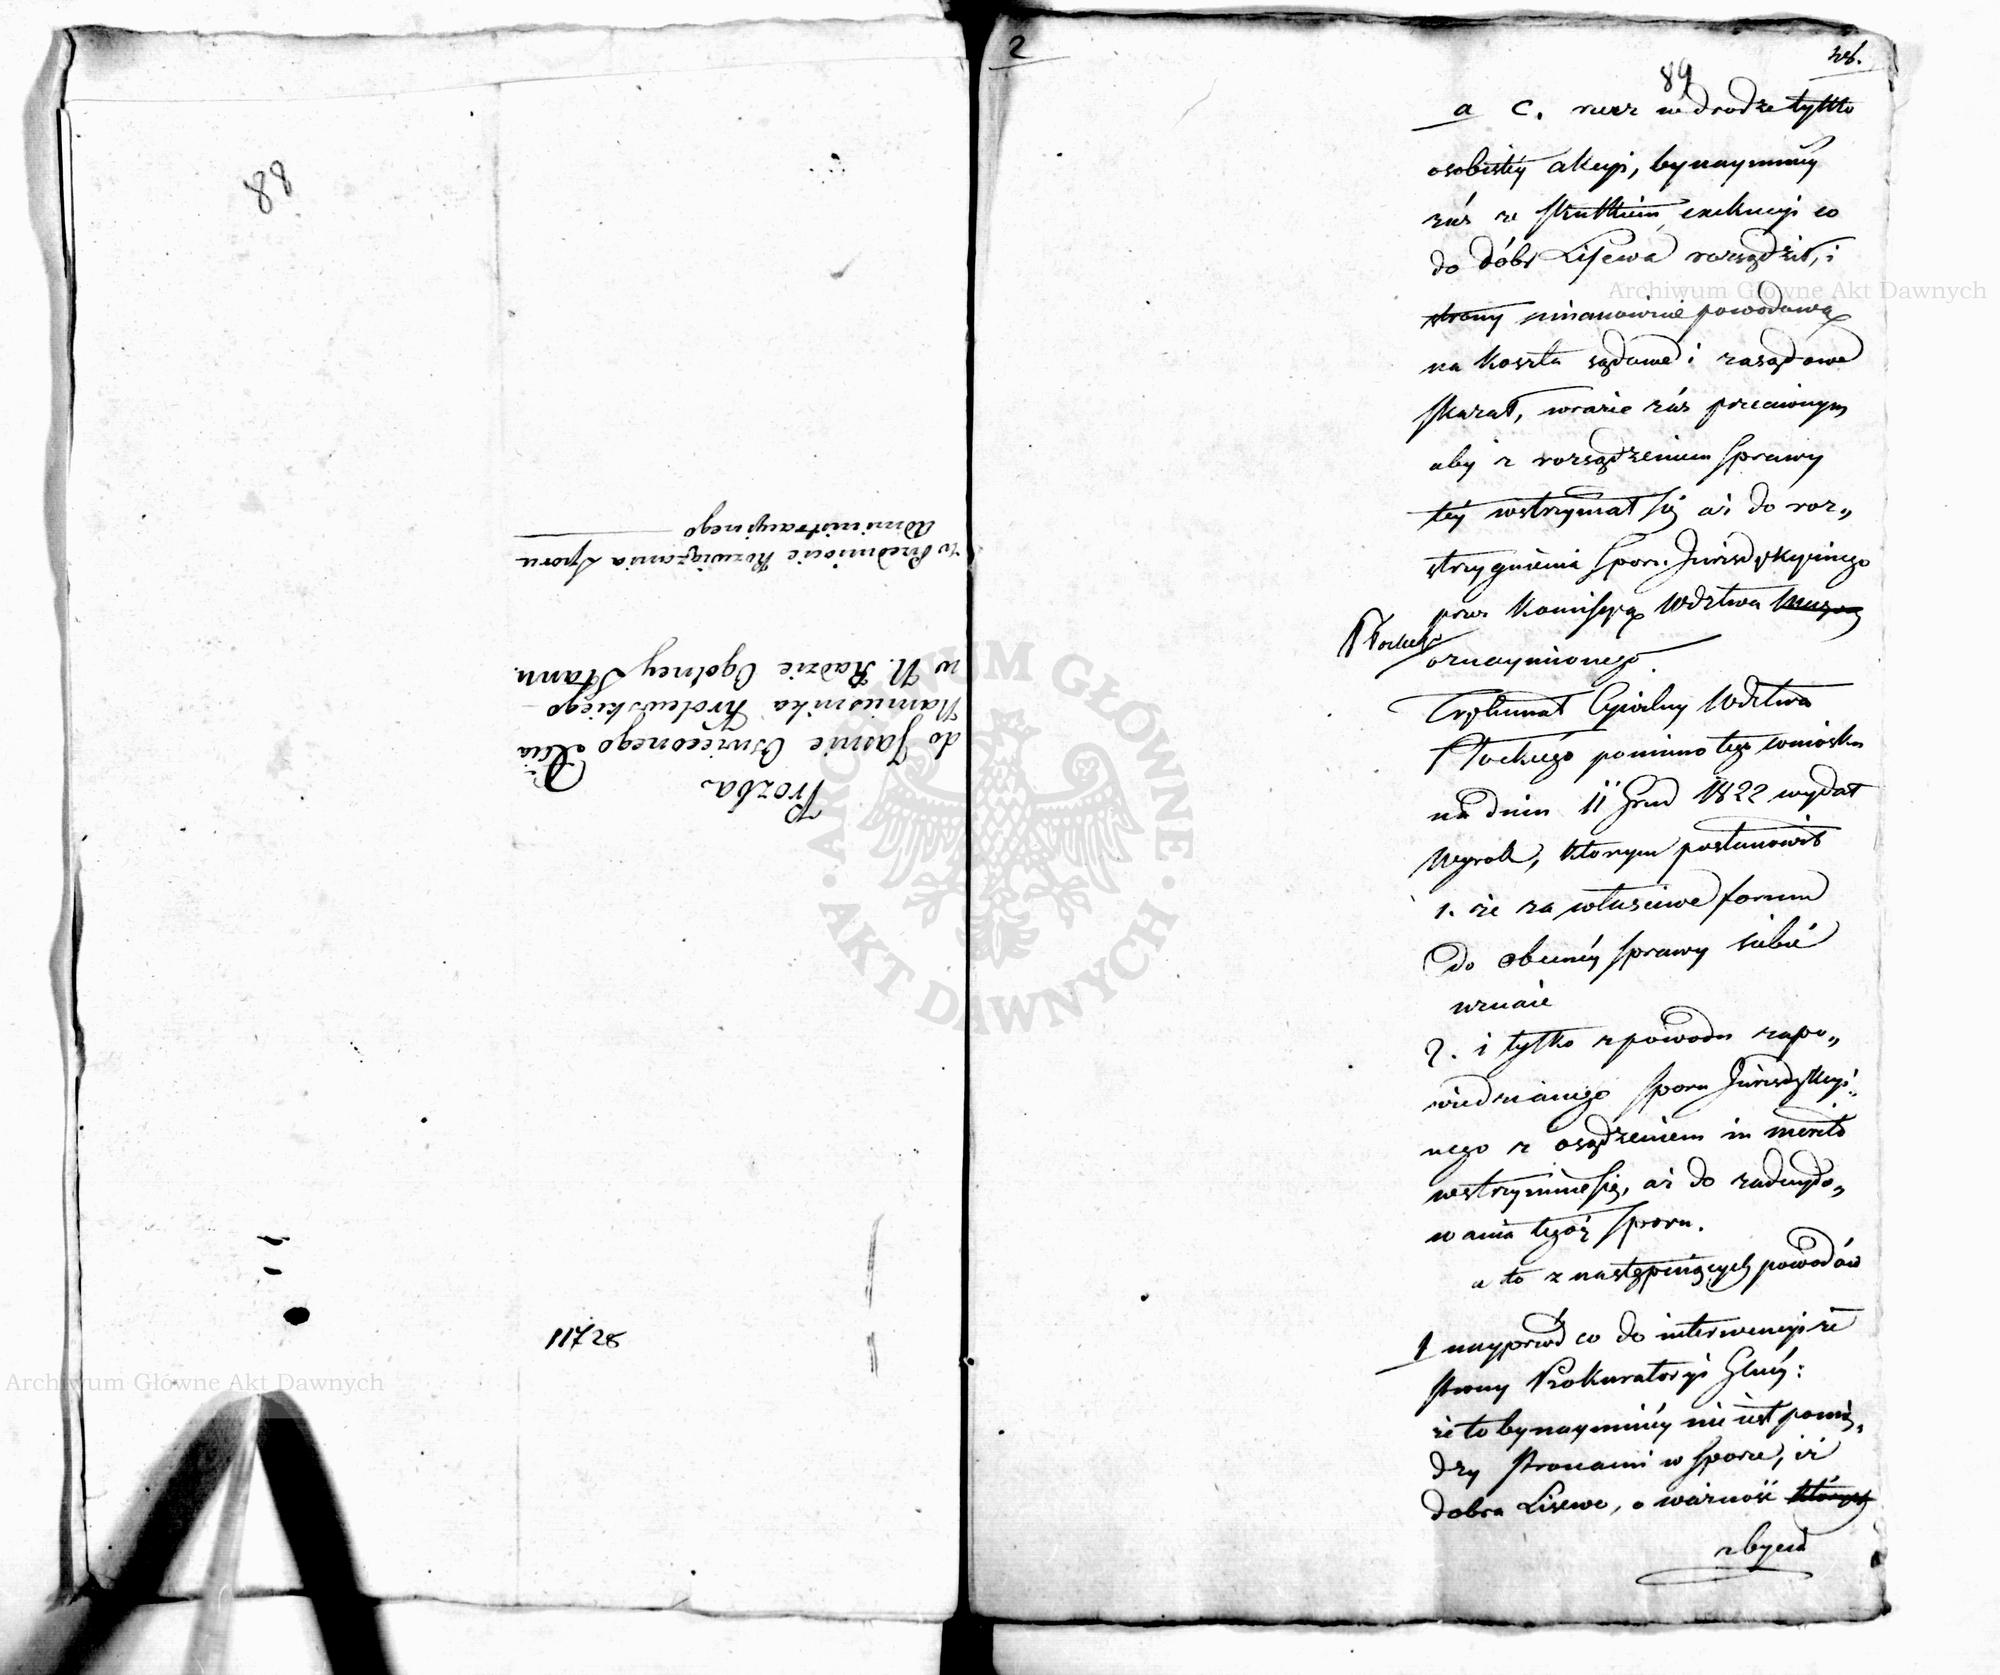 88
Prozba
do Jaśnie Oświeconego Xcia
Namiesnika Krolewskiego
w N. Radzie Ogolney Stanu.
w Przedmiocie Rozwiązania Sporu
Administracyinego
11728
2
89
a c. rzecz w drodze tylko
osobistéy akcyi, bynaymniéy
zaś ze skutkiem exekucyi co
do dóbr Lisewa rozsądził, i
strony mianowicie powodową
na koszta sądowe i zasądowe
skazał, w razie zaś przeciwnym
aby z rozsądzeniem sprawy
téy wstrzymał się aż do roz„
strzygnienia sporu Jurisdykcyinego
przez Kommissyą Wdztwa
Płockiego
oznaymionego.
Trybunał Cywilny Wdztwa
Płockiego pomimo tego wniosku
na dniu 11 Grud 1822 wydał
Wyrok, którym postanowił
1. że za właściwe forum
do obecnéy sprawy siebie
uznaie
2. i tylko z powodu zapo„
wiedzianego sporu Jurisdykcyi„
nego z osądzeniem in merito
wstrzymuie się, aż do zadecydo„
wania tegoż sporu.
a to z następuiących powodów
1 nayprzód co do interwencyi ze
strony Prokuratoryi Glnéy:
że to bynaymniéy nie iest pomię„
dzy stronami w sporze, iż
dobra Lisewo, o ważność których
zbycia
Archiwum Główne Akt Dawnych
Archiwum Główne Akt Dawnych
ARCHIWUM GŁÓWNE · AKT DAWNYCH ·